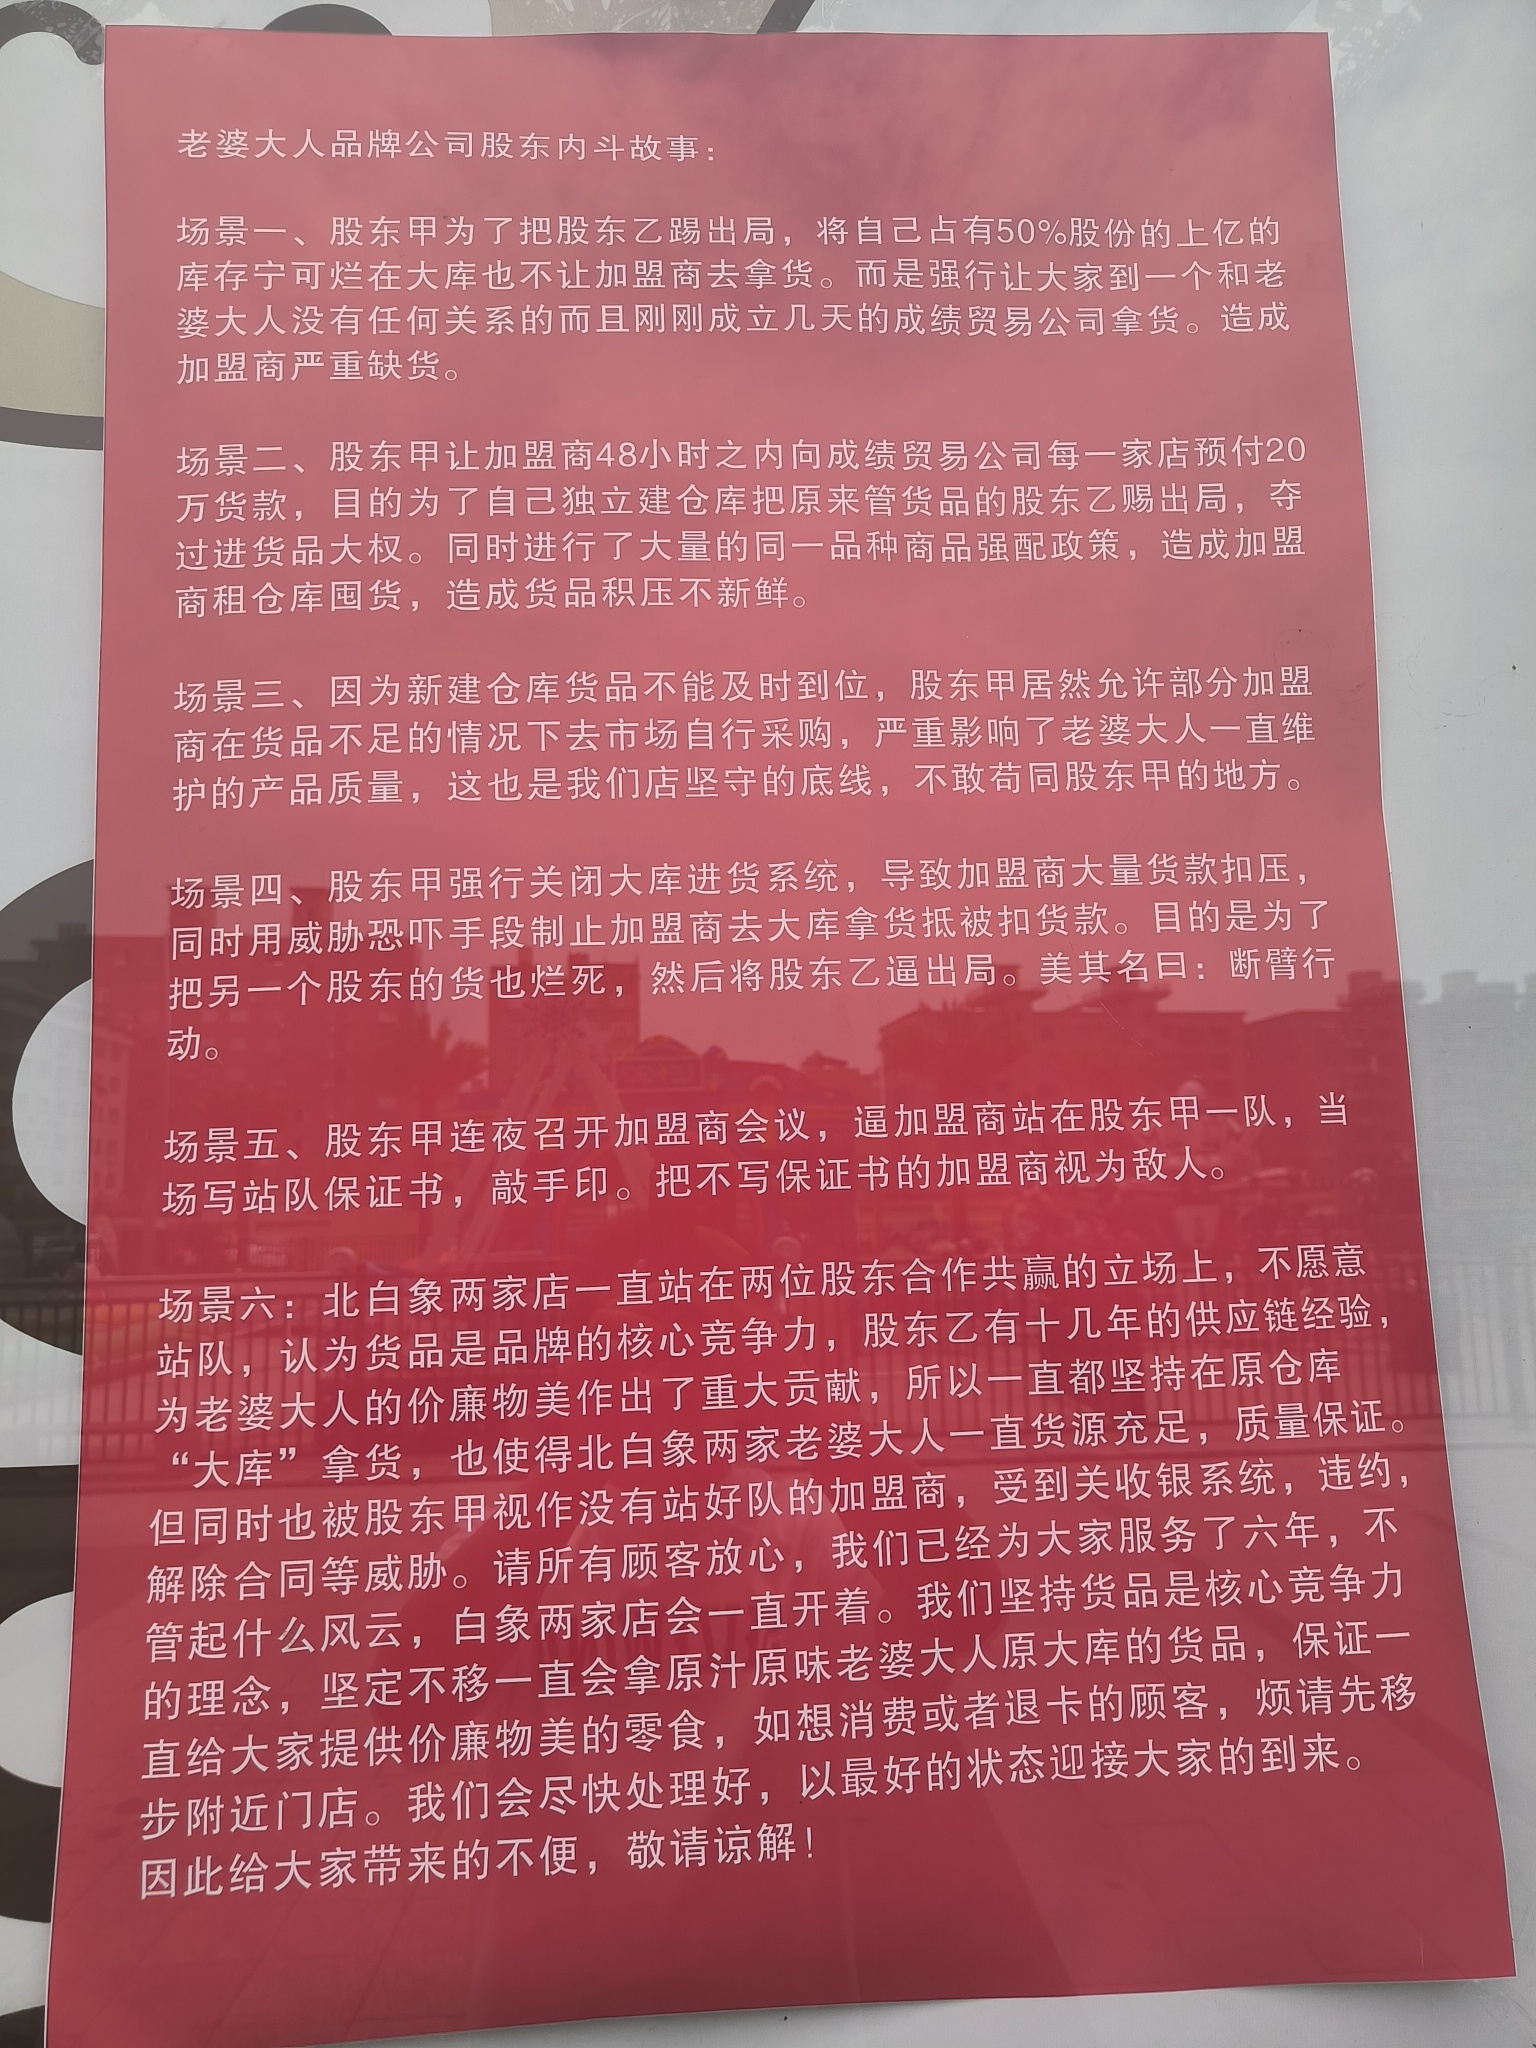 老婆大人品牌公司股东内斗故事：
场景一、股东甲为了把股东乙踢出局，将自己占有50%股份的上亿的
库存宁可烂在大库也不让加盟商去拿货。而是强行让大家到一个和老
婆大人没有任何关系的而且刚刚成立几天的成绩贸易公司拿货。造成
加盟商严重缺货。
场景二、股东甲让加盟商48小时之内向成绩贸易公司每一家店预付20
万货款，目的为了自己独立建仓库把原来管货品的股东乙赐出局，夺
过进货品大权。同时进行了大量的同一品种商品强配政策，造成加盟
商租仓库囤货，造成货品积压不新鲜。
场景三、因为新建仓库货品不能及时到位，股东甲居然允许部分加盟
商在货品不足的情况下去市场自行采购，严重影响了老婆大人一直维
护的产品质量，这也是我们店坚守的底线，不敢苟同股东甲的地方。
场景四、股东甲强行关闭大库进货系统，导致加盟商大量货款扣压，
同时用威胁恐吓手段制止加盟商去大库拿货抵被扣货款。目的是为了
把另一个股东的货也烂死，然后将股东乙逼出局。美其名曰：断臂行
动。
场景五、股东甲连夜召开加盟商会议，逼加盟商站在股东甲一队，当
场写站队保证书，敲手印。把不写保证书的加盟商视为敌人。
场景六：北白象两家店一直站在两位股东合作共赢的立场上，不愿意
站队，认为货品是品牌的核心竞争力，股东乙有十几年的供应链经验，
为老婆大人的价廉物美作出了重大贡献，所以一直都坚持在原仓库
“大库”拿货，也使得北白象两家老婆大人一直货源充足，质量保证。
但同时也被股东甲视作没有站好队的加盟商，受到关收银系统，违约，
解除合同等威胁。请所有顾客放心，我们已经为大家服务了六年，不
管起什么风云，白象两家店会一直开着。我们坚持货品是核心竞争力
的理念，坚定不移一直会拿原汁原味老婆大人原大库的货品，保证一
直给大家提供价廉物美的零食，如想消费或者退卡的顾客，烦请先移
步附近门店。我们会尽快处理好，以最好的状态迎接大家的到来。
因此给大家带来的不便，敬请谅解！